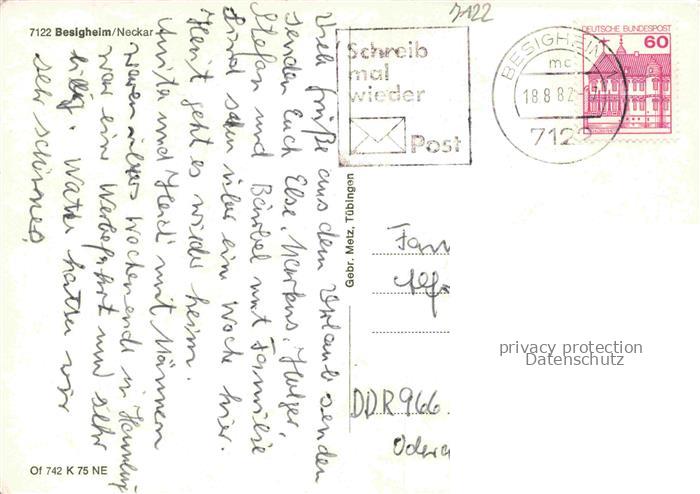 7122 Besigheim/Neckar
7122
Schreib
mal
wieder
Post
BESIGHEIM
mc
18.8.82
7122
DEUTSCHE BUNDESPOST
60
Viele Grüße aus dem Urlaub senden
senden Euch Else, Markus, Holger,
Stefan und Bärbel mit Familie
sind schon über eine Woche hier.
Heut geht es wieder heim.
Anita und Heidi mit Männern
waren übers Wochenende in Hamburg
war eine Werbefahrt und sehr
billig. Wetter hatten wir
sehr schönes.
Gebr. Metz, Tübingen
Fam
DDR 966
Odera
privacy protection
Datenschutz
Of 742 K 75 NE